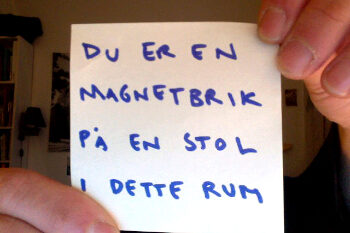 DU ER EN
MAGNETBRIK
PÅ EN STOL
I DETTE RUM